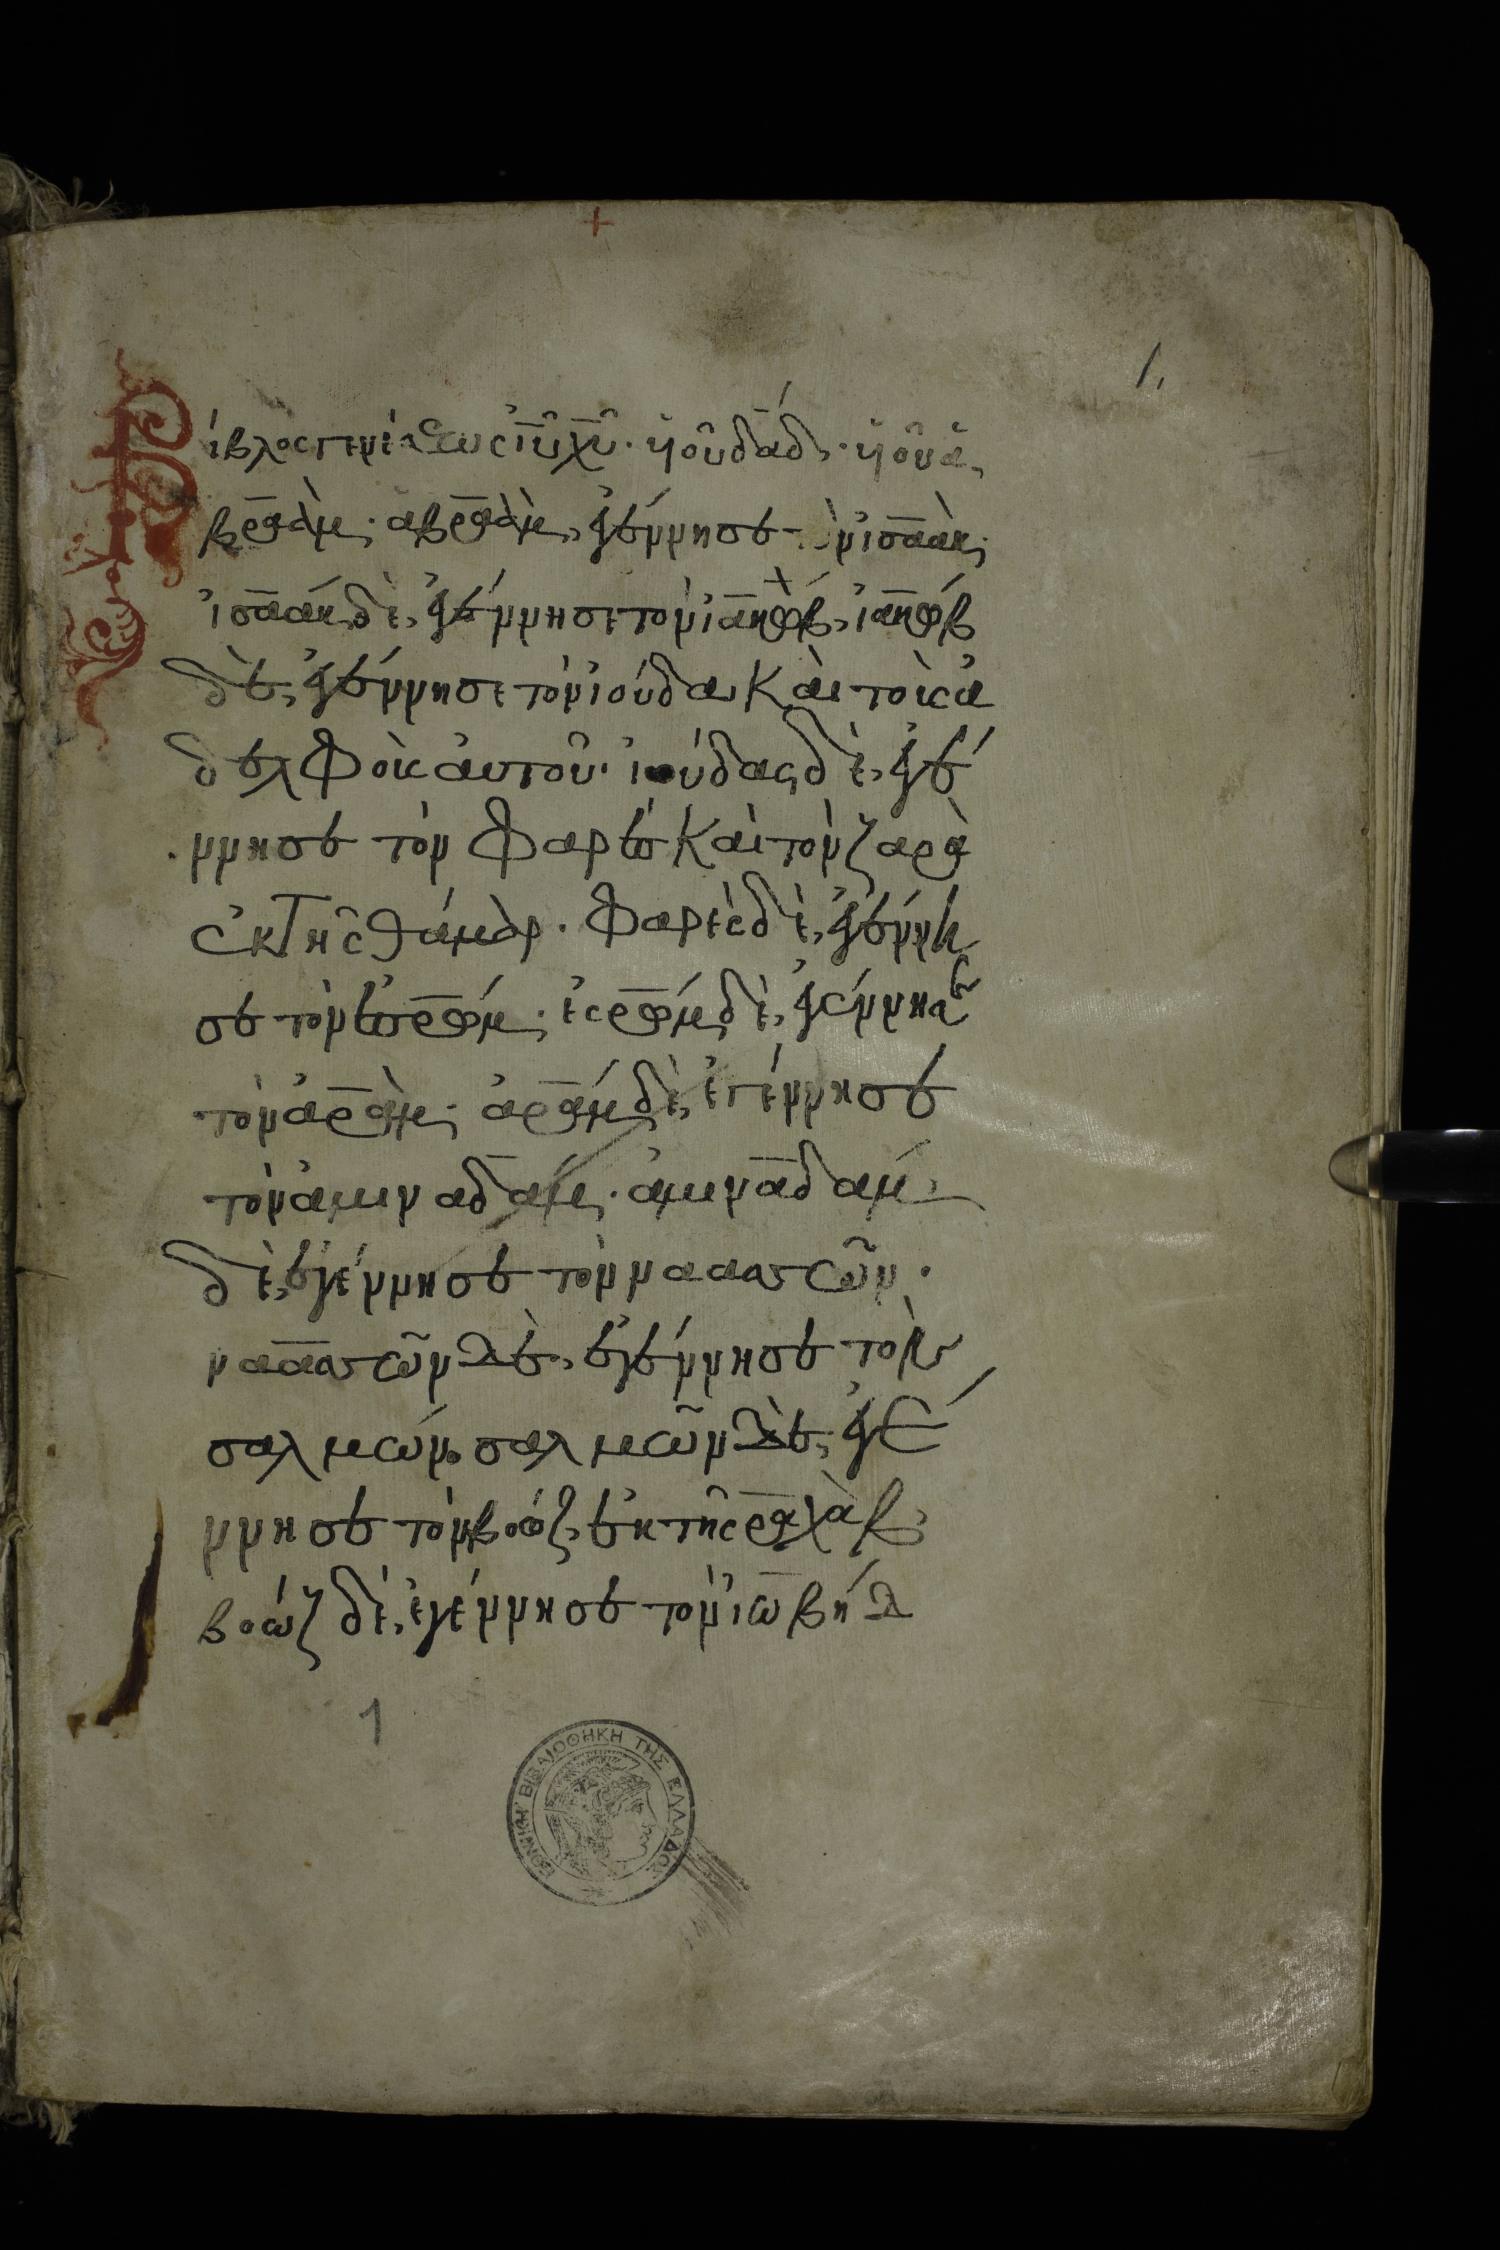 1,
Βίβλος γενέσεως ἰῦ χῦ· ὑοῦ δᾱδ· ὑοῦ ἀ
βρᾱὰμ· αβρᾱὰμ, ἐγέννησε τὸν ἰσᾱὰκ·
ἰσᾱὰκ δὲ, ἐγέννησε τὸν ἰᾱκώβ, ἰᾱκώβ
δὲ, ἐγέννησε τὸν ἰούδα καὶ τοὺς ἀ
δελφοὺς ἀυτοῦ· ἰούδας δὲ, ἐγέ
ννησε τὸν φαρὲς καὶ τὸν ζαρὰ
ἐκ τῆς θάμαρ· φαρὲς δὲ, ἐγέννη
σε τὸν ἐσρώμ· ἐσρώμ δὲ, ἐγέννησε
τὸν ἀρὰμ· ἀράμ δὲ, ἐγέννησε
τὸν ἀμιναδάμ· ἀμιναδάμ
δὲ, ἐγέννησε τὸν ναασσῶν·
ναασσῶν δὲ, ἐγέννησε τὸν
σαλμών· σαλμῶν δὲ, ἐγέ
ννησε τὸν βοὸζ, ἐκ τῆς ραχὰβ
βοώζ δὲ, ἐγέννησε τὸν ἰωβήδ
1
ΕΘΝΙΚΗ ΒΙΒΛΙΟΘΗΚΗ ΤΗΣ ΕΛΛΑΔΟΣ